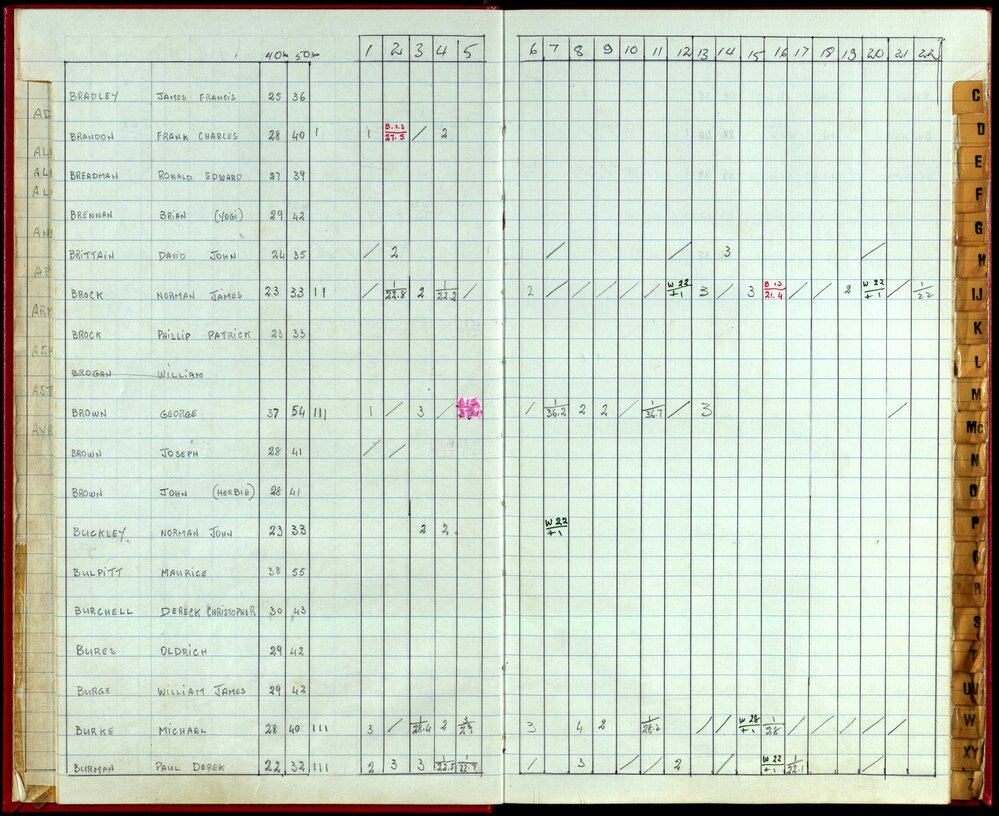 40m 50m 1 2 3 4 5 6 7 8 9 10 11 12 13 14 15 16 17 18 19 20 21 22
BRADLEY JAMES FRANCIS 25 36
BRANDON FRANK CHARLES 28 40 1 1 B.13/27.5 / 2
BREADMAN RONALD EDWARD 27 39
BRENNAN BRIAN (YOGI) 29 42
BRITTAIN DAVID JOHN 24 35 / 2 / / 3 /
BROCK NORMAN JAMES 23 33 11 / 1/22.8 2 1/22.2 / 2 / / / / / W 22/+1 3 / 3 B 13/21.4 / / 2 W 22/+1 / 1/22
BROCK PHILLIP PATRICK 23 33
BROGAN WILLIAM
BROWN GEORGE 37 54 111 1 / 3 / / 1/36.2 2 2 / 1/36.7 / 3 /
BROWN JOSEPH 28 41 / /
BROWN JOHN (HERBIE) 28 41
BUCKLEY NORMAN JOHN 23 33 2 2 W 22/+1
BULPITT MAURICE 38 55
BURCHELL DERECK CHRISTOPHER 30 43
BURES OLDRICH 29 42
BURGE WILLIAM JAMES 29 42
BURKE MICHAEL 28 40 111 3 / 1/28.4 2 3/29 3 4 2 1/28.2 / / W 28/+1 1/28 / / / / /
BURMAN PAUL DEREK 22 32 111 2 3 3 1/22.5 1/22.7 / 3 / / 2 W 22/+1 1/22.1 /
AD
ALI
ALI
AL
AN
AP
ARM
ASH
AST
AYR
C
D
E
F
G
H
IJ
K
L
M
Mc
N
O
P
R
S
T
UV
W
XY
Z